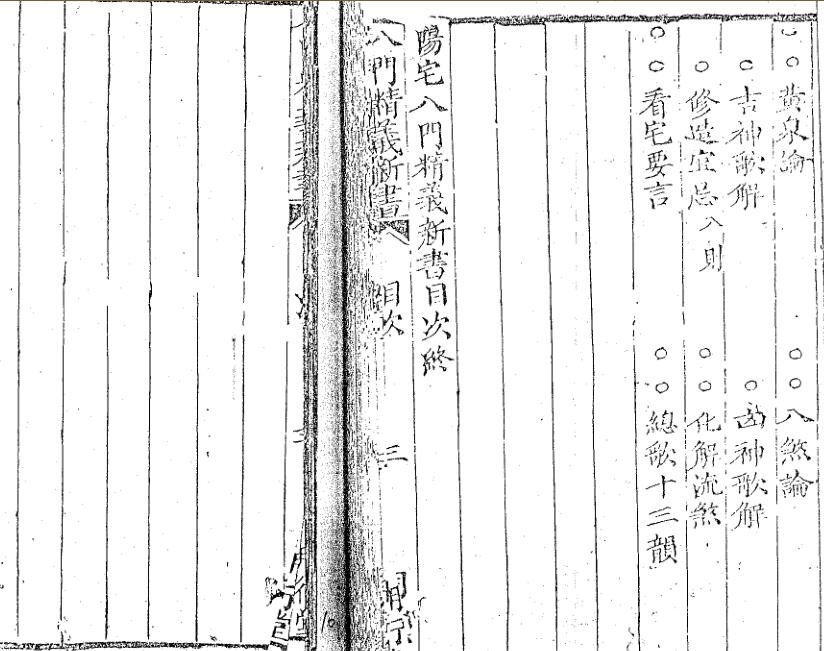 ○○黃泉論
○○八煞論
○吉神歌解
○凶神歌解
○修造宜忌八則
○○化解流煞
○○看宅要言
○○總歌十三韻
陽宅八門精義新書目次終
八門精義新書
目次
三
10